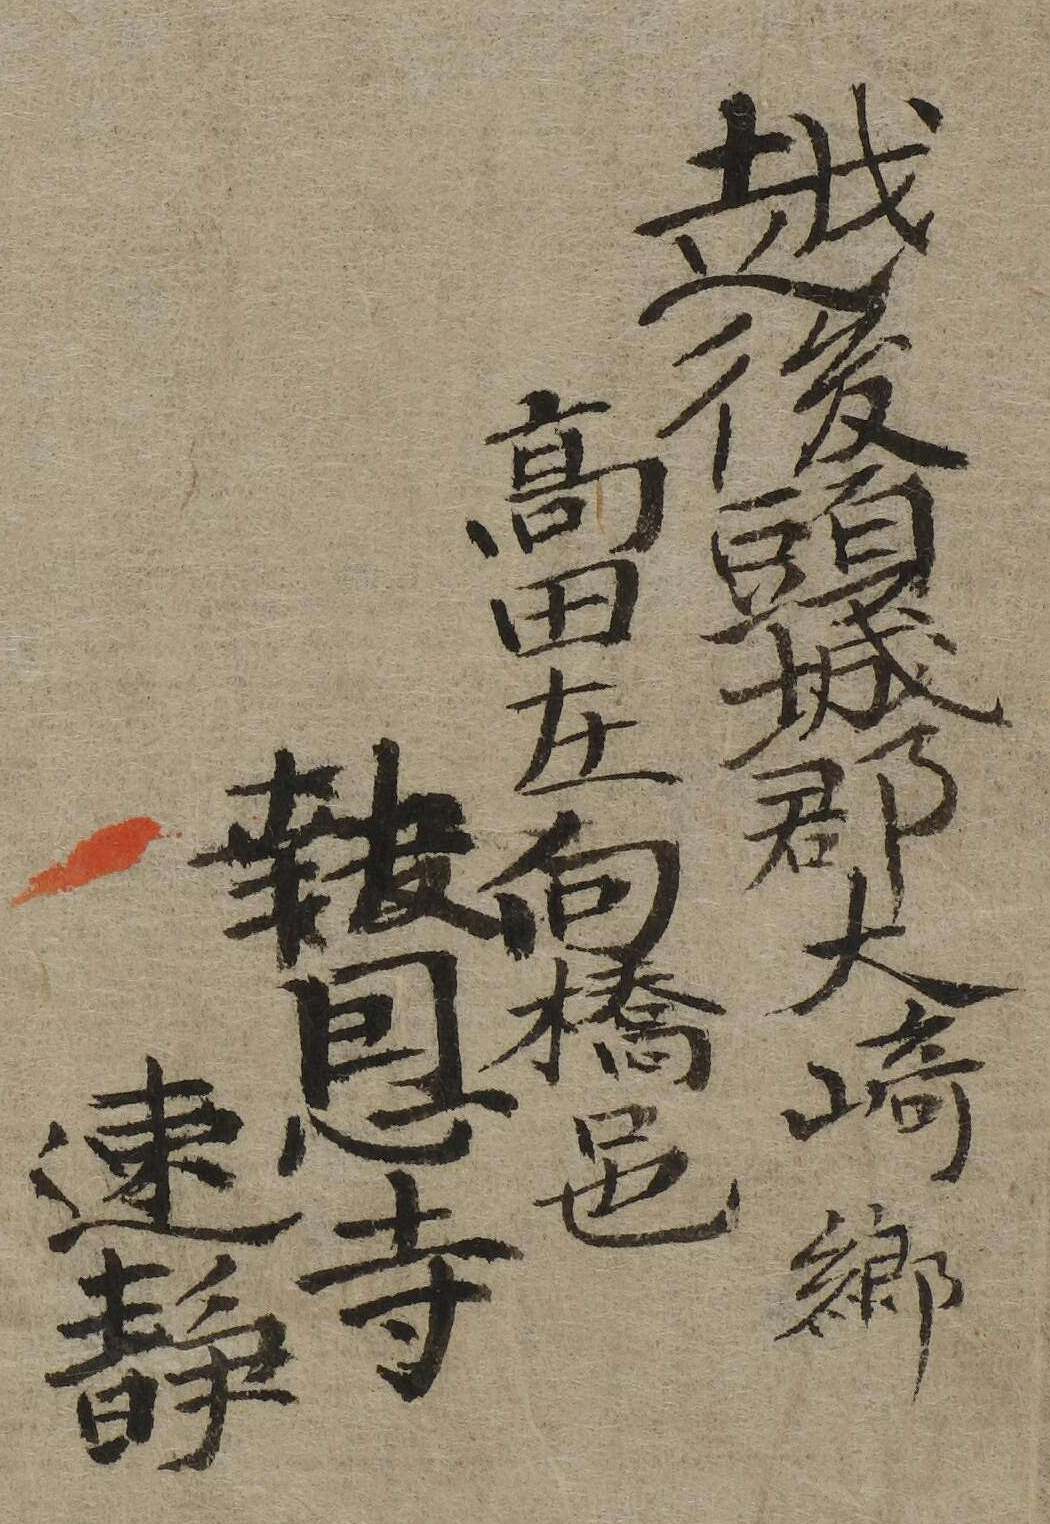 越後頸城郡大崎郷
高田左向橋邑
報恩寺
速静